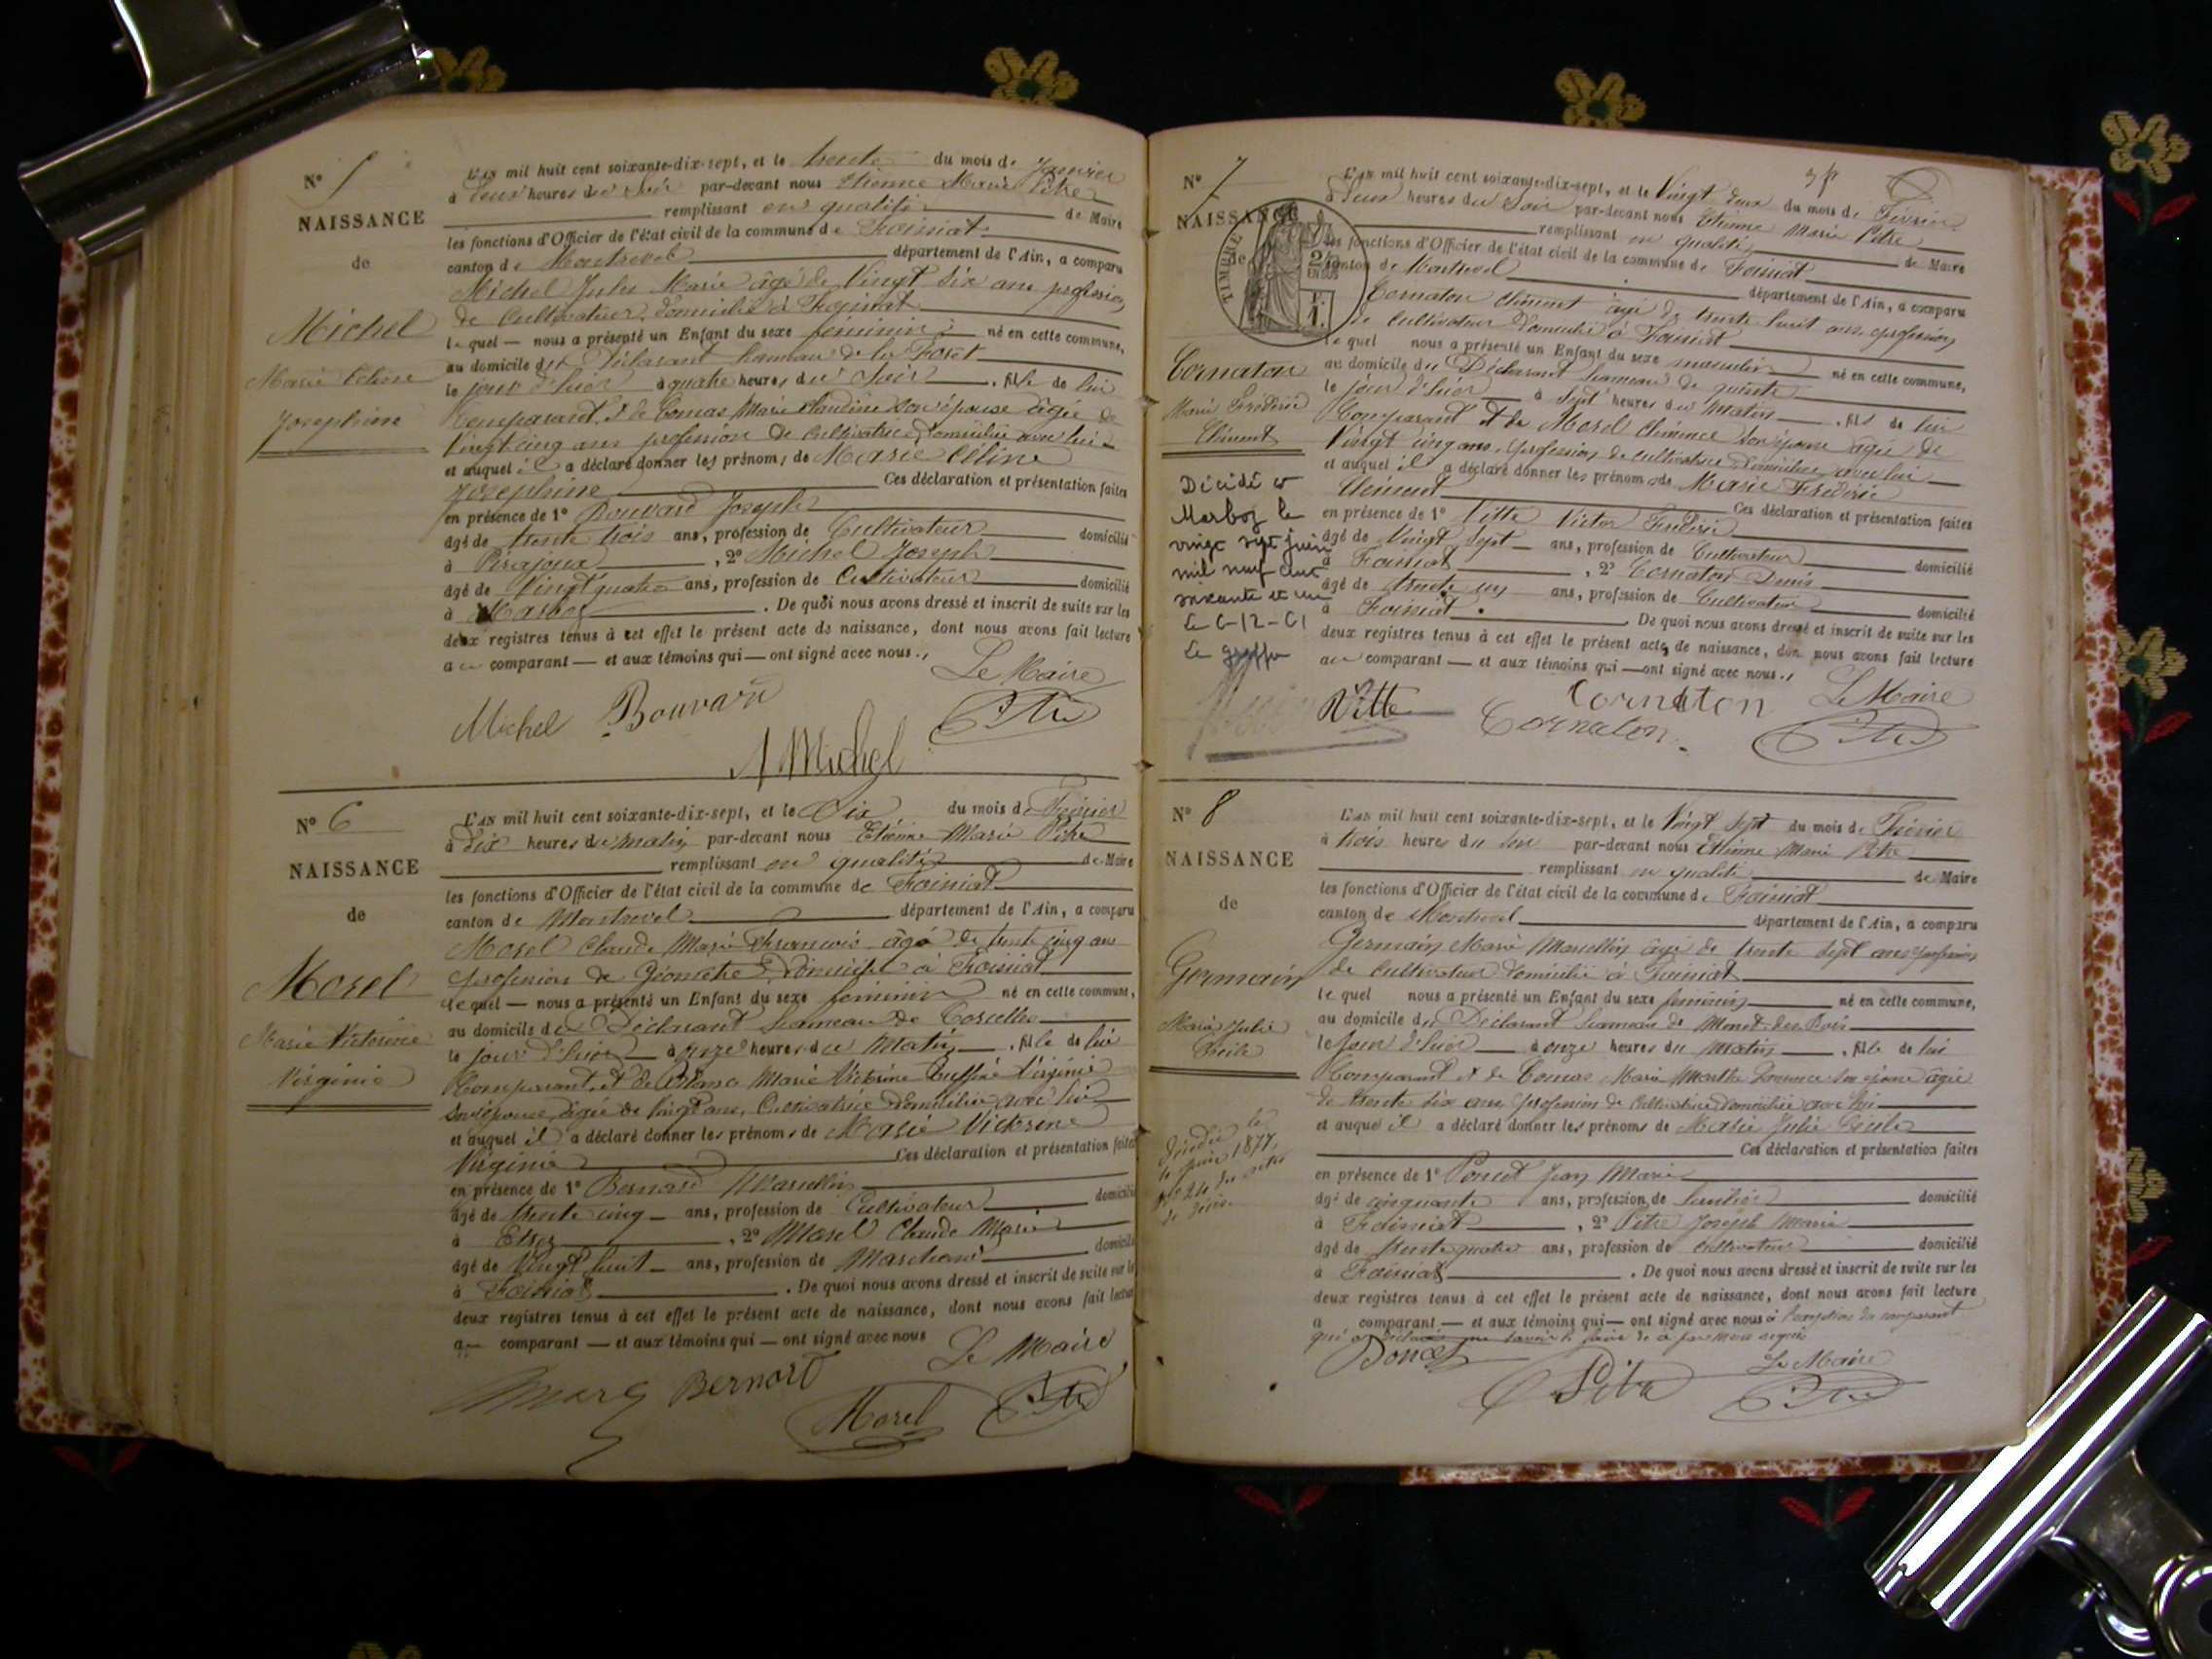 N° 5
NAISSANCE
de
Michel
Marie Céline
Josephine
L'AN mil huit cent soixante-dix-sept, et le trente du mois de Janvier
à deux heures du soir par-devant nous Etienne Marie Pitre
remplissant en qualité de Maire
les fonctions d'Officier de l'état civil de la commune de Foissiat
canton de Montrevel département de l'Ain, a comparu
Michel Jules Marie âgé de Vingt six ans profession
de Cultivateur domicilié à Foissiat
lequel — nous a présenté un Enfant du sexe féminin né en cette commune,
au domicile du Déclarant hameau de la Forêt
le jour d'hier à quatre heures du soir, fille de lui
Comparant & de Comas Marie Claudine son épouse âgée de
Vingt cinq ans profession de Cultivatrice domiciliée avec lui
et auquel il a déclaré donner les prénoms de Marie Céline
Josephine Ces déclaration et présentation faites
en présence de 1° Bouvard Joseph
âgé de trente trois ans, profession de Cultivateur domicilié
à Pirajoux, 2° Michel Joseph
âgé de Vingt quatre ans, profession de Cultivateur domicilié
à Marboz. De quoi nous avons dressé et inscrit de suite sur les
deux registres tenus à cet effet le présent acte de naissance, dont nous avons fait lecture
au comparant — et aux témoins qui — ont signé avec nous.
Le Maire
Michel Bouvard Pitre
Michel
N° 6
NAISSANCE
de
Morel
Marie Victorine
Virginie
L'AN mil huit cent soixante-dix-sept, et le Dix du mois de Février
à dix heures du matin par-devant nous Etienne Marie Pitre
remplissant en qualité de Maire
les fonctions d'Officier de l'état civil de la commune de Foissiat
canton de Montrevel département de l'Ain, a comparu
Morel Claude Marie François âgé de trente cinq ans
profession de Géomètre domicilié à Foissiat
lequel — nous a présenté un Enfant du sexe féminin né en cette commune,
au domicile du Déclarant hameau de Corcelles
le jour d'hier à onze heures du Matin, fille de lui
Comparant et de Marie Victorine Virginie
son épouse âgée de vingt ans, Cultivatrice domiciliée avec lui
et auquel il a déclaré donner les prénoms de Marie Victorine
Virginie Ces déclaration et présentation faites
en présence de 1° Bernard Marcellin
âgé de trente cinq ans, profession de Cultivateur domicilié
à Etrez, 2° Morel Claude Marie
âgé de Vingt huit ans, profession de Marchand domicilié
à Foissiat. De quoi nous avons dressé et inscrit de suite sur les
deux registres tenus à cet effet le présent acte de naissance, dont nous avons fait lecture
au comparant — et aux témoins qui — ont signé avec nous
Le Maire
Bernard Morel Pitre
N° 7
NAISSANCE
de
TIMBRE
Cornaton
Marie Frédéric
Clément
Décédé à
Marboz le
vingt sept juin
mil neuf cent
soixante et un
Le 6-12-61
Le greffier
L'AN mil huit cent soixante-dix-sept, et le Vingt deux du mois de Février
à deux heures du soir par-devant nous Etienne Marie Pitre
remplissant en qualité de Maire
les fonctions d'Officier de l'état civil de la commune de Foissiat
canton de Montrevel département de l'Ain, a comparu
Cornaton Clément âgé de trente huit ans profession
de Cultivateur domicilié à Foissiat
lequel nous a présenté un Enfant du sexe masculin né en cette commune,
au domicile du Déclarant hameau de
le jour d'hier à sept heures du Matin, fils de lui
Comparant et de Morel Clémence son épouse âgée de
Vingt cinq ans, profession de cultivatrice domiciliée avec lui
et auquel il a déclaré donner les prénoms de Marie Frédéric
Clément Ces déclaration et présentation faites
en présence de 1° Vitte Victor Frédéric
âgé de Vingt sept ans, profession de Cultivateur domicilié
à Foissiat, 2° Cornaton Denis
âgé de trente un ans, profession de Cultivateur domicilié
à Foissiat. De quoi nous avons dressé et inscrit de suite sur les
deux registres tenus à cet effet le présent acte de naissance, dont nous avons fait lecture
au comparant — et aux témoins qui — ont signé avec nous.
Vitte Cornaton Le Maire
Cornaton Pitre
N° 8
NAISSANCE
de
Germain
Marie Julie
Cécile
L'AN mil huit cent soixante-dix-sept, et le Vingt sept du mois de Février
à trois heures du soir par-devant nous Etienne Marie Pitre
remplissant en qualité de Maire
les fonctions d'Officier de l'état civil de la commune de Foissiat
canton de Montrevel département de l'Ain, a comparu
Germain Marie Marcellin âgé de trente sept ans profession
de Cultivateur domicilié à Foissiat
lequel nous a présenté un Enfant du sexe féminin né en cette commune,
au domicile du Déclarant hameau de
le jour d'hier à onze heures du matin, fille de lui
Comparant et de Comas Marie Marthe son épouse âgée
de trente six ans, profession de Cultivatrice domiciliée avec lui
et auquel il a déclaré donner les prénoms de Marie Julie Cécile
Ces déclaration et présentation faites
en présence de 1° Poncet Jean Marie
âgé de cinquante ans, profession de domicilié
à Foissiat, 2° Pitre Joseph Marie
âgé de trente quatre ans, profession de Cultivateur domicilié
à Foissiat. De quoi nous avons dressé et inscrit de suite sur les
deux registres tenus à cet effet le présent acte de naissance, dont nous avons fait lecture
a comparant — et aux témoins qui — ont signé avec nous à l'exception du comparant
qui a déclaré ne savoir le faire de ce requis
Poncet Pitre Le Maire
Pitre